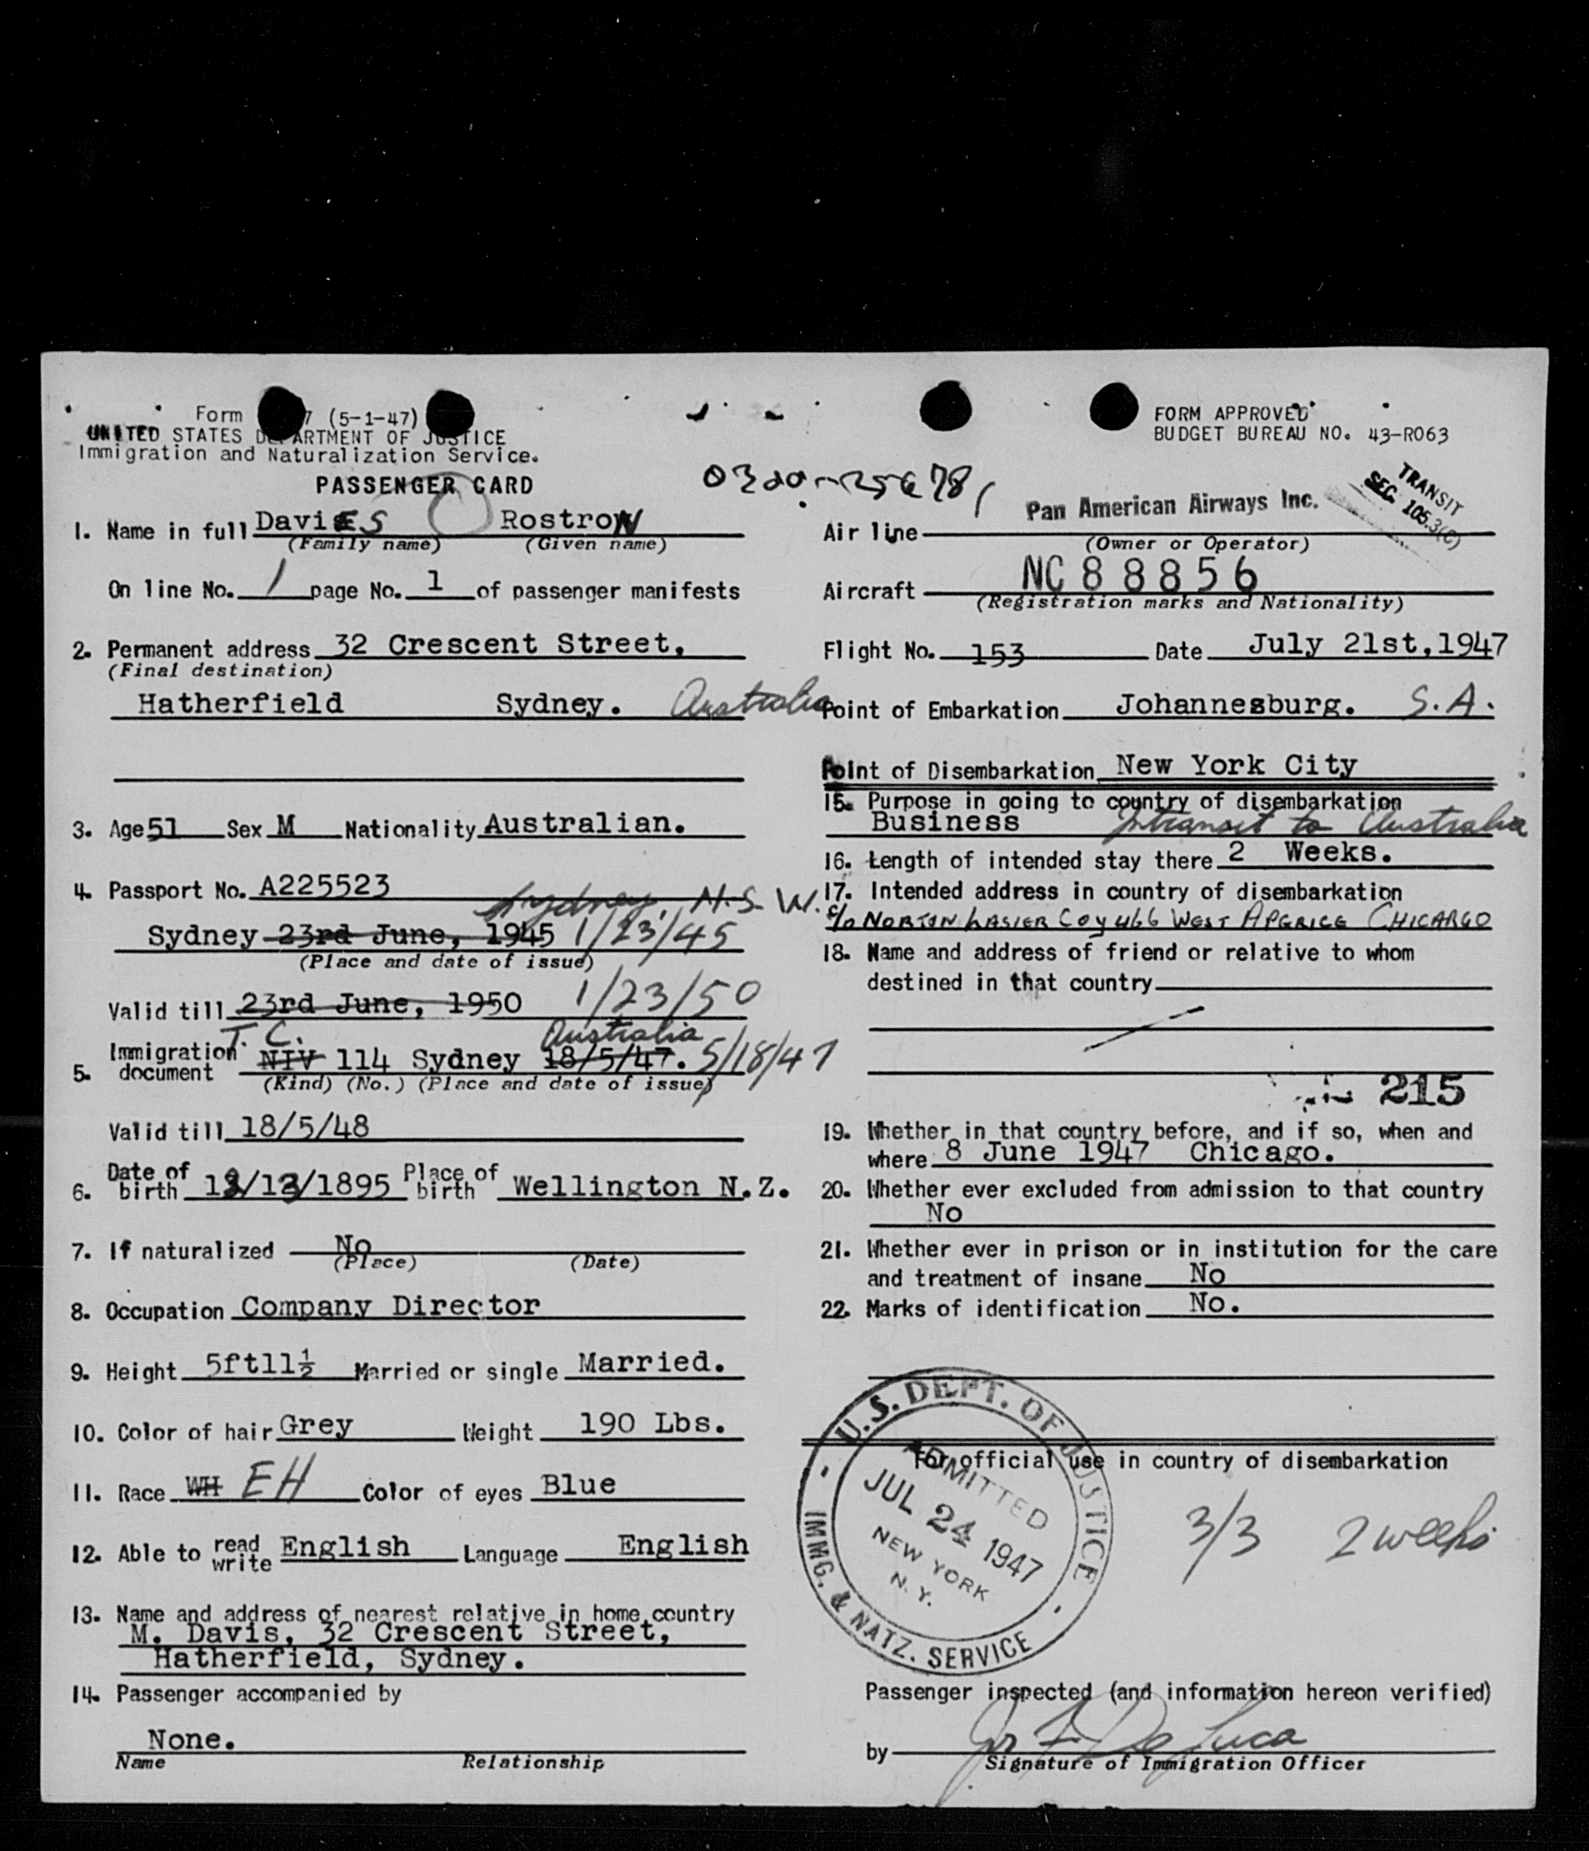 Form 7 (5-1-47)
UNITED STATES DEPARTMENT OF JUSTICE
Immigration and Naturalization Service.
PASSENGER CARD
1. Name in full DaviES Rostron
(Family name) (Given name)
On line No. 1 page No. 1 of passenger manifests
2. Permanent address 32 Crescent Street,
(Final destination)
Hatherfield Sydney. Australia
3. Age 51 Sex M Nationality Australian.
4. Passport No. A225523
Sydney, N.S.W.
Sydney 23rd June, 1945 1/23/45
(Place and date of issue)
Valid till 23rd June, 1950 1/23/50
T. C. Australia
5. Immigration document NIV 114 Sydney 18/5/47. 5/18/47
(Kind) (No.) (Place and date of issue)
Valid till 18/5/48
6. Date of birth /1895 Place of birth Wellington N.Z.
7. If naturalized No
(Place) (Date)
8. Occupation Company Director
9. Height 5ft11½ Married or single Married.
10. Color of hair Grey Weight 190 Lbs.
11. Race WH EH Color of eyes Blue
12. Able to read write English Language English
13. Name and address of nearest relative in home country
M. Davis, 32 Crescent Street,
Hatherfield, Sydney.
14. Passenger accompanied by
None.
Name Relationship
FORM APPROVED
BUDGET BUREAU NO. 43-R063
TRANSIT
SEC. 105.3(C)
Air line Pan American Airways Inc.
(Owner or Operator)
Aircraft NC88856
(Registration marks and Nationality)
Flight No. 153 Date July 21st, 1947
Point of Embarkation Johannesburg. S.A.
Point of Disembarkation New York City
15. Purpose in going to country of disembarkation
Business Intransit to Australia
16. Length of intended stay there 2 Weeks.
17. Intended address in country of disembarkation
c/o NORTON LASIER COY 466 WEST CHICARGO
18. Name and address of friend or relative to whom
destined in that country
215
19. Whether in that country before, and if so, when and
where 8 June 1947 Chicago.
20. Whether ever excluded from admission to that country
No
21. Whether ever in prison or in institution for the care
and treatment of insane No
22. Marks of identification No.
For official use in country of disembarkation
U.S. DEPT. OF JUSTICE
ADMITTED
JUL 24 1947
NEW YORK
N.Y.
IMMG. & NATZ. SERVICE
3/3 2 weeks
Passenger inspected (and information hereon verified)
by De Luca
Signature of Immigration Officer